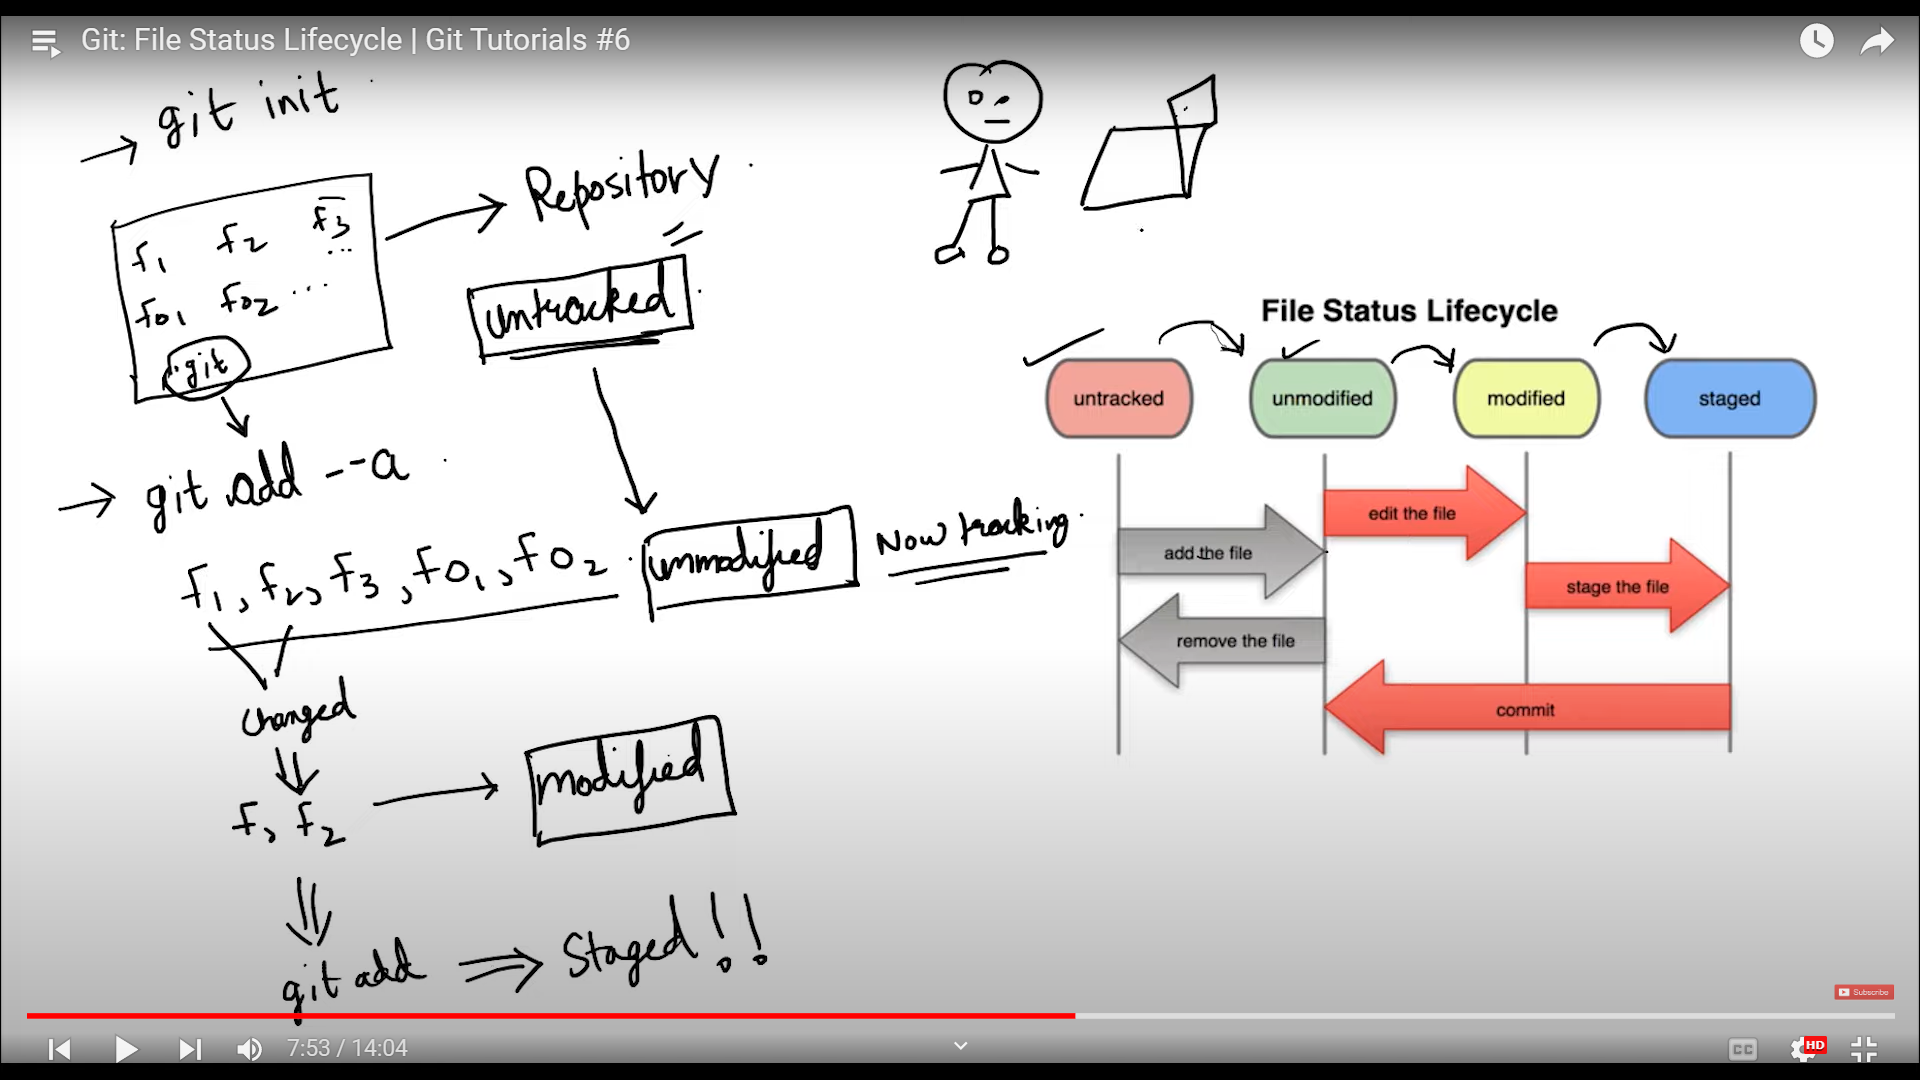 Git: File Status Lifecycle | Git Tutorials #6
→ git init
f1 f2 f3 ...
f01 f02 ...
.git
Repository
untracked
→ git add --a
f1, f2, f3, f01, f02
unmodified
Now tracking
changed
f1 f2
modified
git add ⇒ Staged!!
File Status Lifecycle
untracked
unmodified
modified
staged
edit the file
add the file
stage the file
remove the file
commit
Subscribe
7:53 / 14:04
CC
HD